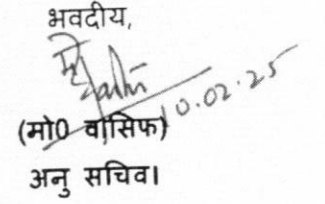 भवदीय,
10.02.25
(मो0 वासिफ)
अनु सचिव।